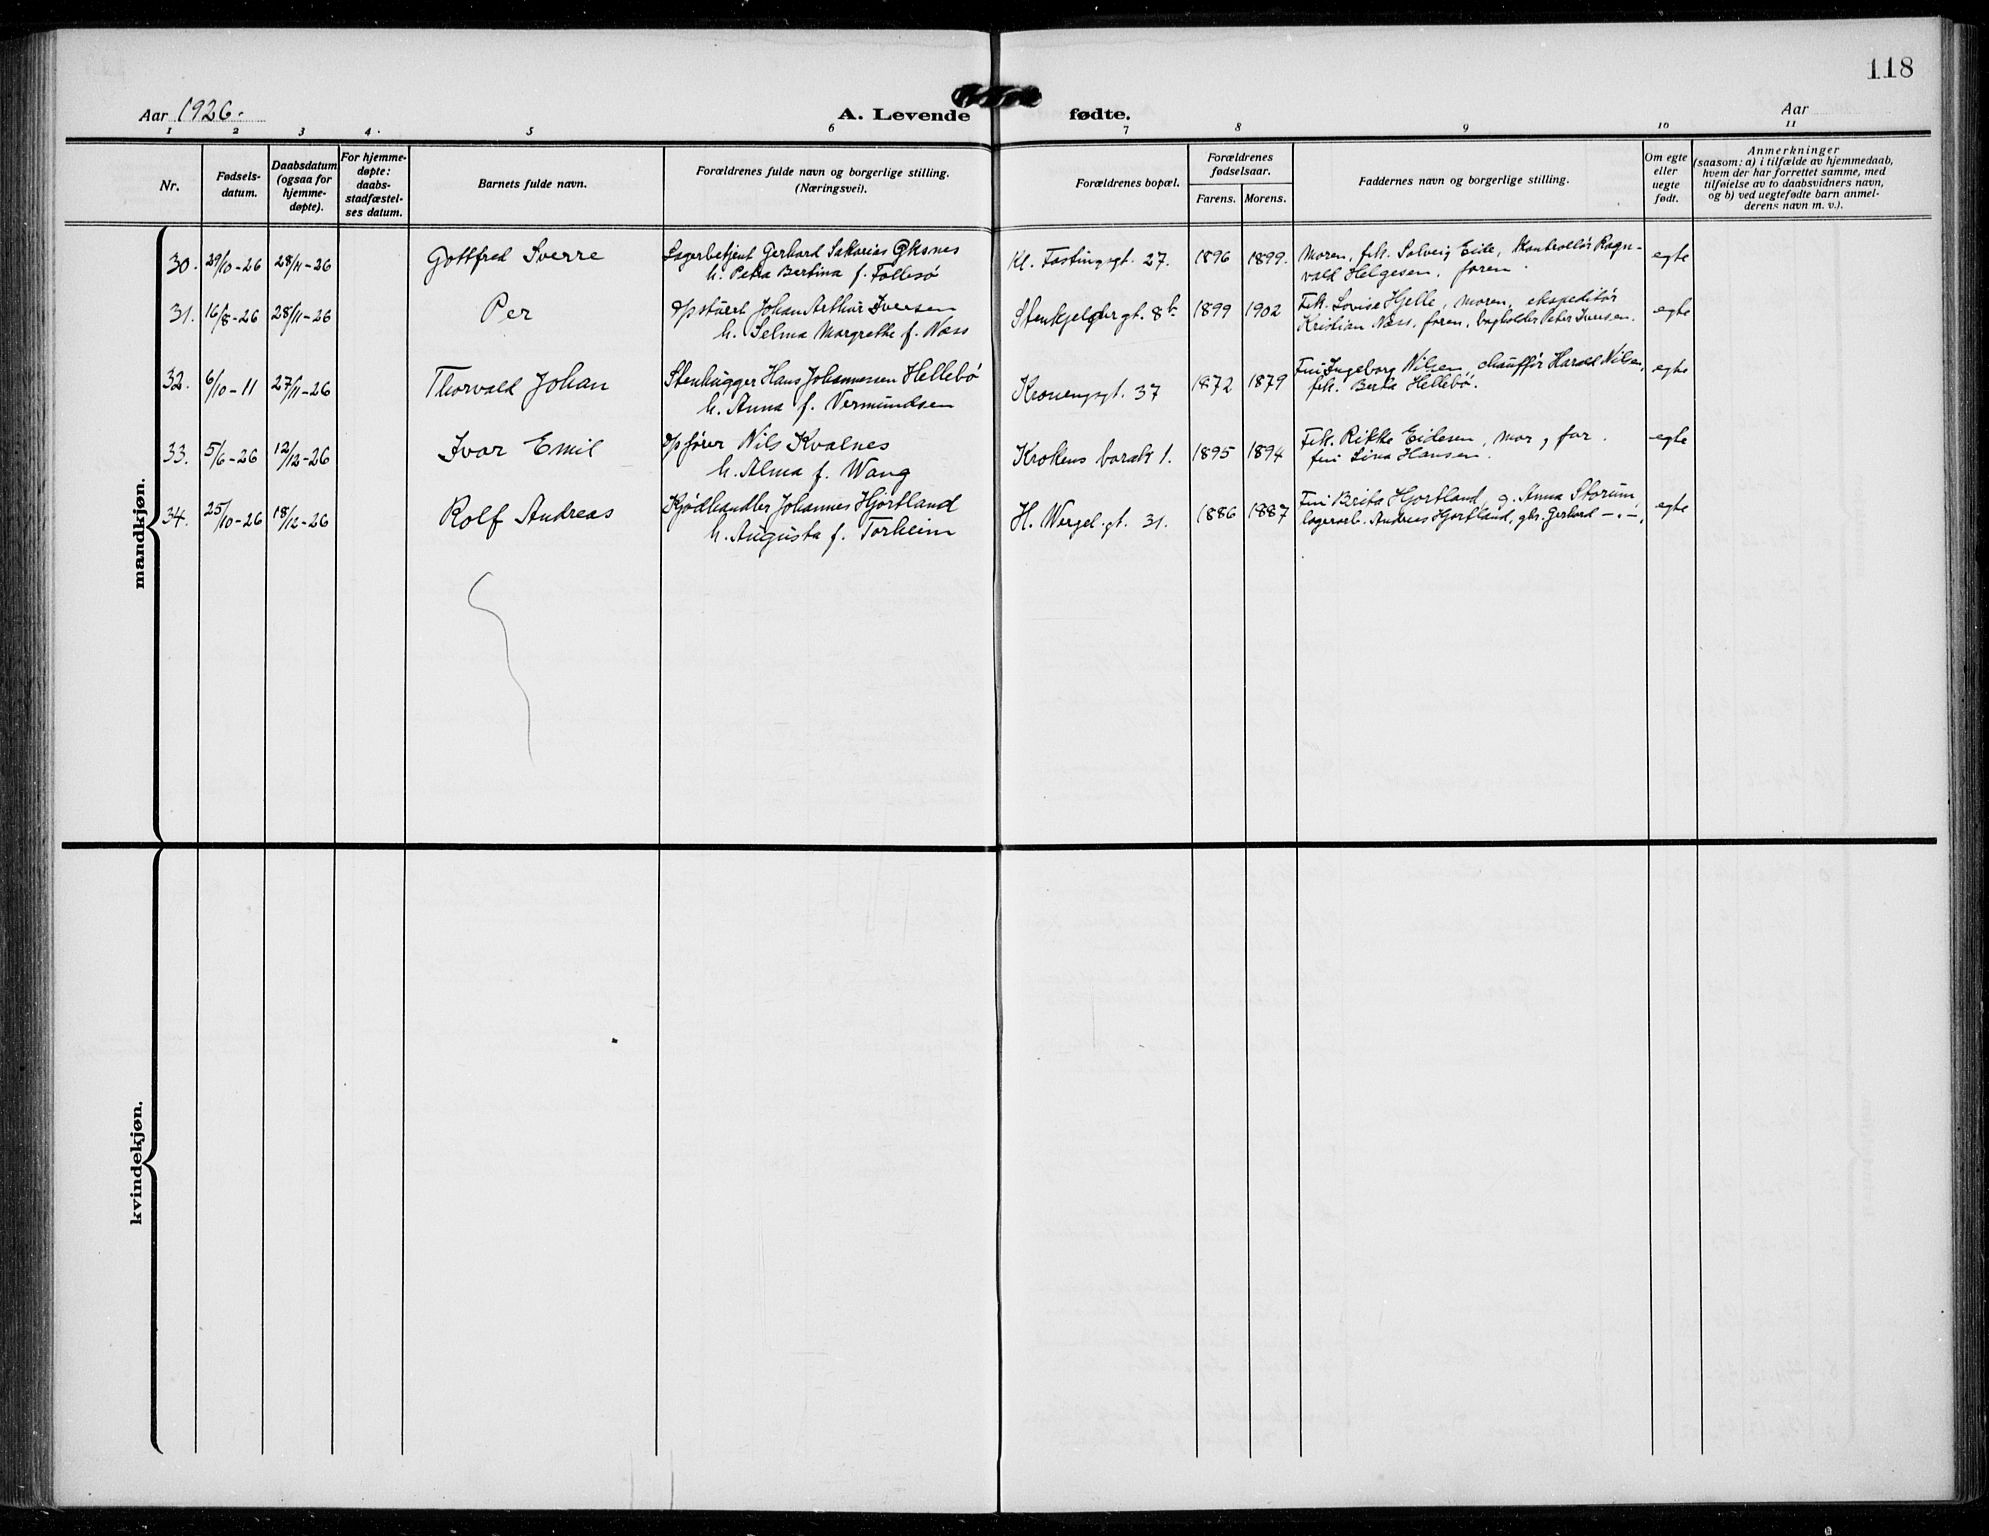 118
Aar 1926.
A. Levende fødte.
Aar
1 2 3 4. 5 6 7 8 9 10 11
Nr.
Fødsels-
datum.
Daabsdatum
(ogsaa for
hjemme-
døpte).
For hjemme-
døpte:
daabs-
stadfæstel-
ses datum.
Barnets fulde navn.
Forældrenes fulde navn og borgerlige stilling.
(Næringsvei).
Forældrenes bopæl.
Forældrenes
fødselsaar.
Farens. Morens.
Faddernes navn og borgerlige stilling.
Om egte
eller
uegte
født.
Anmerkninger
(saasom: a) i tilfælde av hjemmedaab,
hvem der har forrettet samme, med
tilføielse av to daabsvidners navn,
og b) ved uegtefødte barn anmel-
derens navn m. v.).
mandkjøn.
30. 29/10-26 28/11-26 Gottfred Sverre Lagerbetjent Gerhard Sakarias Øksnes Kl. Fastingsgt. 27. 1896 1899. Moren, frk. Solveig Eide, kontrollør Ragn- egte
h. Petra Bertina f. Follesø vald Helgesen, faren.
31. 16/8-26 28/11-26 Per Johan Arthur Iversen Stenkjelgbergt. 8b 1899 1902 Frk. Lovise Hjelle, moren, ekspeditør egte
h. Selma Margrethe f. Næss Kristian Næss, faren, bogholder Peter Iversen.
32. 6/10-11 27/11-26 Thorvald Johan Stenhugger Hans Johannessen Hellebø Kroneng.gt. 37 1872 1879 Fru Ingeborg Nilsen, chauffør Harald Nilsen, egte
h. Anna f. Vermundsen frk. Berta Hellebø.
33. 5/6-26 12/12-26 Ivar Emil opfører Nils Kvalnes Krokens barak 1. 1895 1894 Frk. Rikke Eidesen, mor, far. egte
h. Alma f. Wang fru Lina Hansen.
34. 25/10-26 18/12-26 Rolf Andreas Kjødhandler Johannes Hjortland H. Wergel.gt. 31. 1886 1887 Fru Brita Hjortland, g. Anna Storum, egte
h. Augusta f. Torheim lagerarb. Andreas Hjortland, gbr. Gerhard -"-.
kvindekjøn.